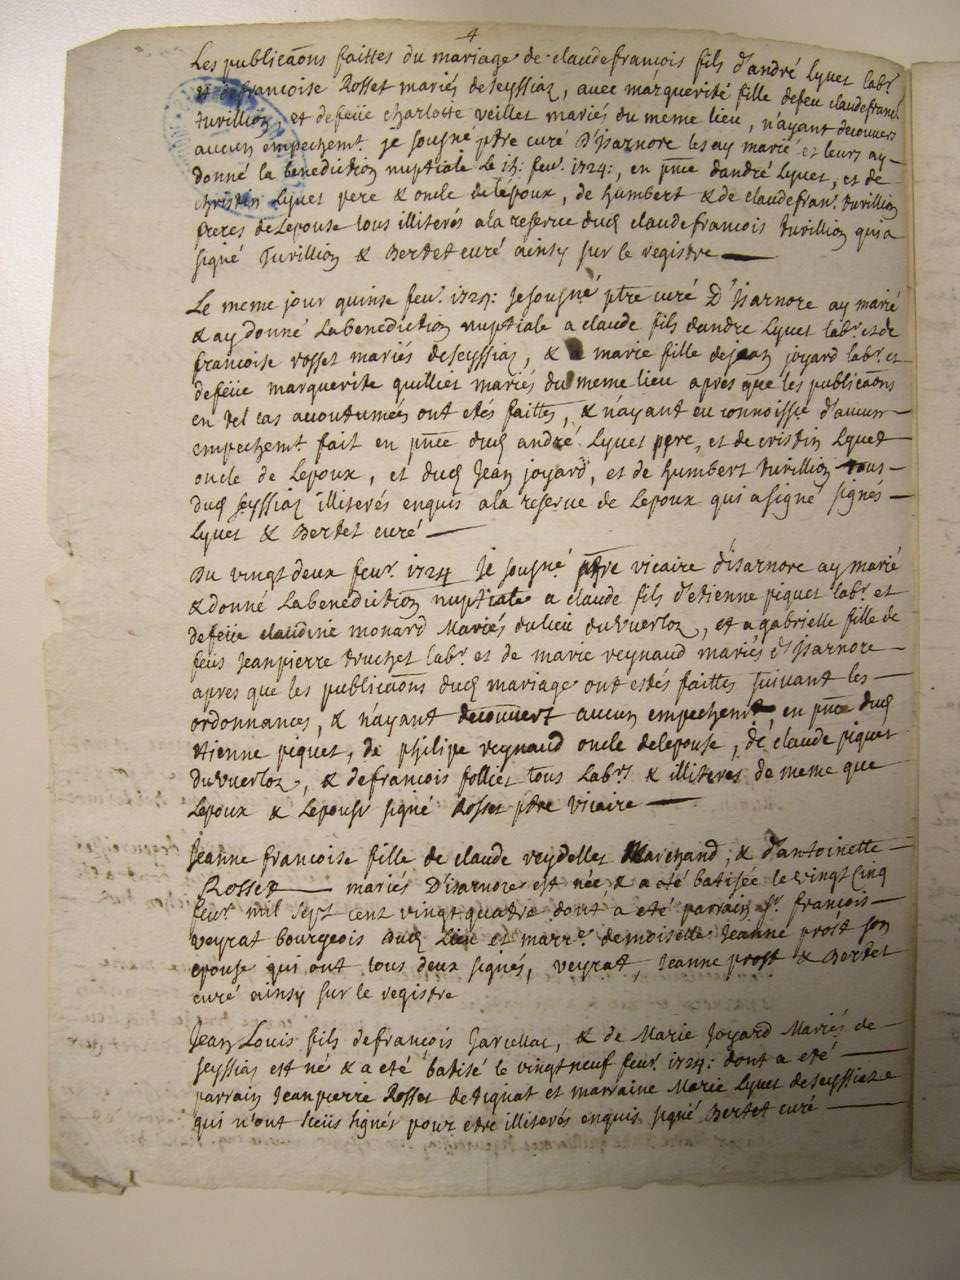 4
Les publicaõns faittes du mariage de claudefrançois fils d'andré Lyuet labr.
et defrançoise Rosset mariés deseyssiaz, auec marguerite fille defeu claudefranc.
turillion et defeüe charlotte veillet mariés du meme lieu, n'ayant decouuert
aucun empechemt. je sousgné ptre curé D'jsarnore les ay marié et leurs ay
donné la benediction nuptiale Le 15: feur. 1724:, en pnce dandré Lyuet, et de
christin Lyuet pere & oncle de lépoux, de humbert & de claudefran. turillion
freres de Lepouse tous illiterés ala reserue dud claudefrancois turillion quia
signé Turillion & Bertet curé ainsy sur le registre
Le meme jour quinse feur. 1724: je sousgné ptre curé D'jsarnore ay marié
& ay donné Labenediction nuptiale a claude fils dandre Lyuet labr. et de
francoise rosset mariés deseyssiaz, & a marie fille dejean joyard labr. et
defeüe marguerite quilliet mariés du meme lieu apres que les publicaõns
en tel cas acoutumées ont etés faittes, & n'ayant eu connoissce d'aucun
empechemt. fait en pnce dud andré Lyuet pere, et de cristin Lyuet
oncle de Lepoux, et dud Jean joyard, et de humbert turillion tous
dud seyssiaz illiterés enquis ala reserue de Lepoux qui asigné signés
Lyuet & Bertet curé
Du vingt deux feur. 1724 je sousgné ptre vicaire d'isarnore ay marié
& donné Labenediction nuptiale a claude fils d'etienne piquet labr. et
defeüe claudine monard Mariés dulieu duVuerloz, et a gabrielle fille de
feüs Jeanpierre truchet labr. et de marie reynaud mariés d'jsarnore
apres que les publicaõns dud mariage ont estés faittes suiuant les
ordonnances, & n'ayant decouuert aucun empechemt. en pnce dud
etienne piquet, de philipe reynaud oncle delepouse, de claude piquet
duVuerloz, & defrancois folliet tous Labrs. & illiteres de meme que
Lepoux & Lepouse signé Rosset ptre vicaire
Jeanne francoise fille de claude reydellet Marchand, & d'antoinette
Rosset mariés D'isarnore est née & a eté batisée le vingt cinq
feur. mil sept cent vingt quatre dont a eté parrain sr. françois
veyrat bourgeois dud Lieu et marre. demoiselle Jeanne prost son
epouse qui ont tous deux signés, veyrat, Jeanne prost & Bertet
curé ainsy sur le registre
Jean Louis fils defrancois & de Marie Joyard Mariés de
seyssias est né & a eté batisé le vingtneuf feur. 1724: dont a eté
parrain Jeanpierre Rosset detignat et marraine Marie Lyuet deseyssiaz
qui n'ont sceüs signés pour etre illiterés enquis signé Bertet curé